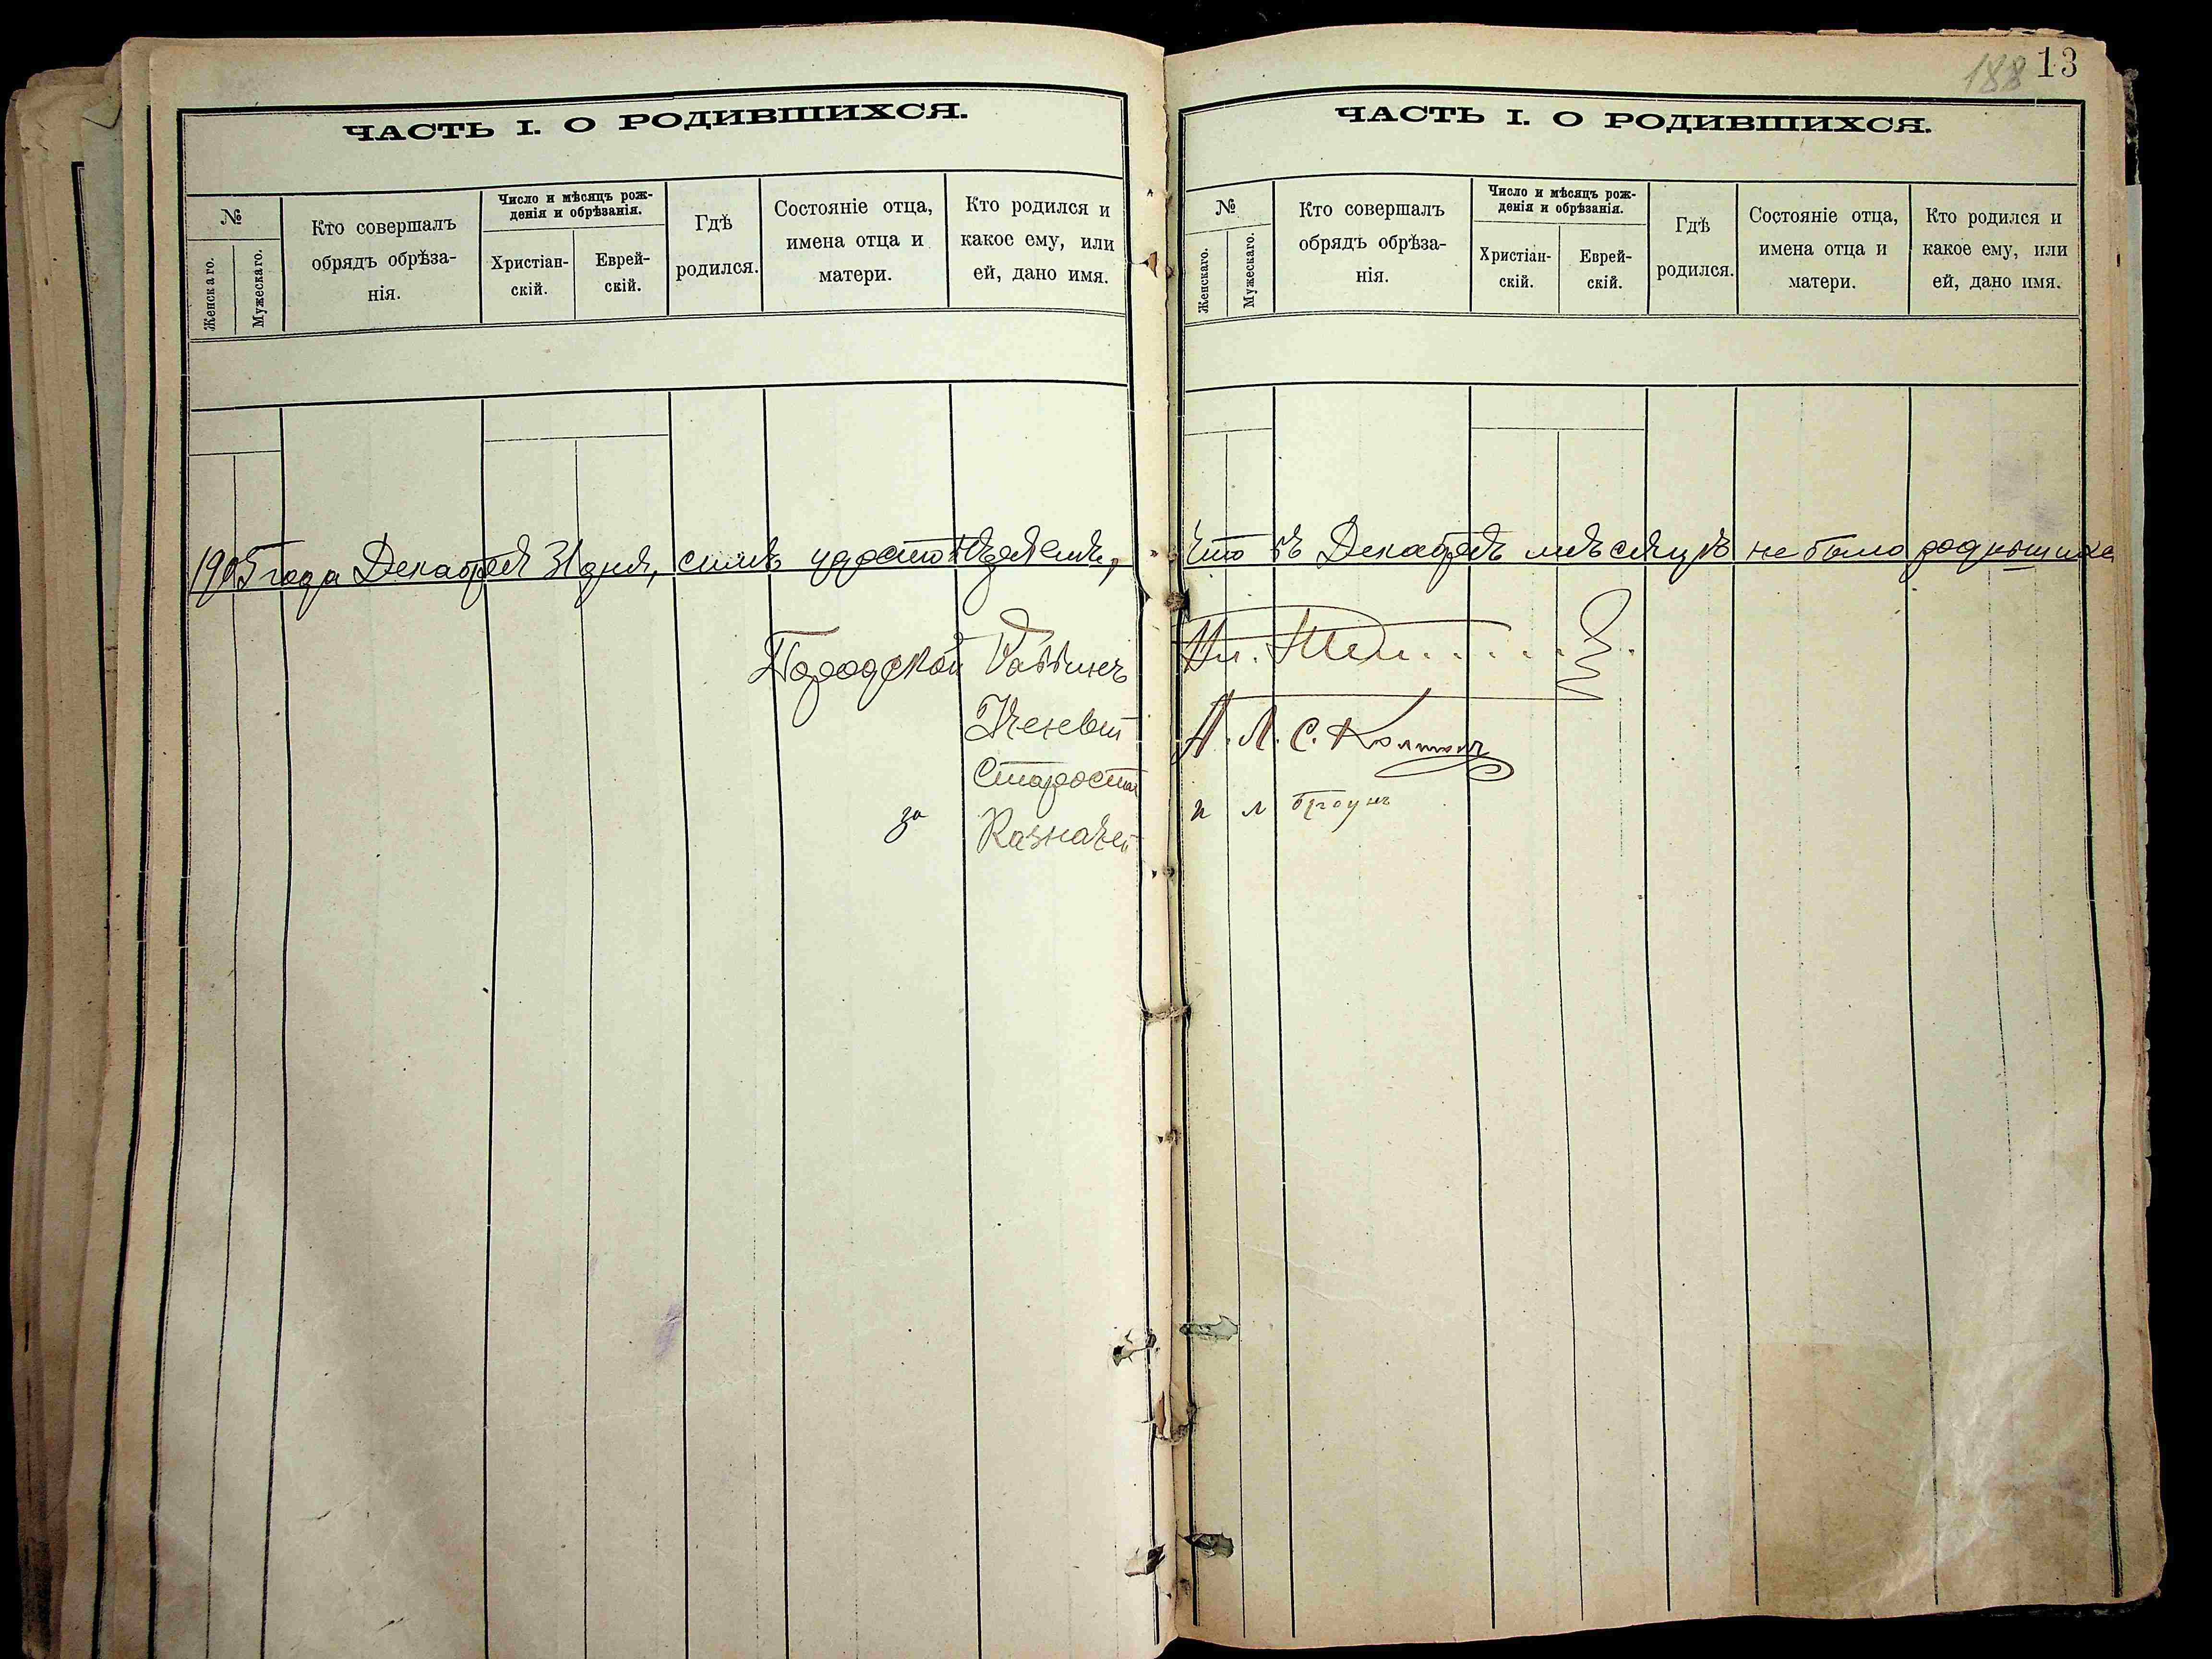 188 13
ЧАСТЬ I. О РОДИВШИХСЯ.
№
Женскаго.
Мужескаго.
Кто совершалъ
обрядъ обрѣза-
нія.
Число и мѣсяцъ рож-
денія и обрѣзанія.
Христіан-
скій.
Еврей-
скій.
Гдѣ
родился.
Состояніе отца,
имена отца и
матери.
Кто родился и
какое ему, или
ей, дано имя.
1905 года Декабря 31 дня, симъ удостовѣряемъ,
Городской Раввинъ
Ученый
Староста
за Казначей
ЧАСТЬ I. О РОДИВШИХСЯ.
№
Женскаго.
Мужескаго.
Кто совершалъ
обрядъ обрѣза-
нія.
Число и мѣсяцъ рож-
денія и обрѣзанія.
Христіан-
скій.
Еврей-
скій.
Гдѣ
родился.
Состояніе отца,
имена отца и
матери.
Кто родился и
какое ему, или
ей, дано имя.
что въ Декабрѣ мѣсяцѣ не было родившихся
А. Л. С.